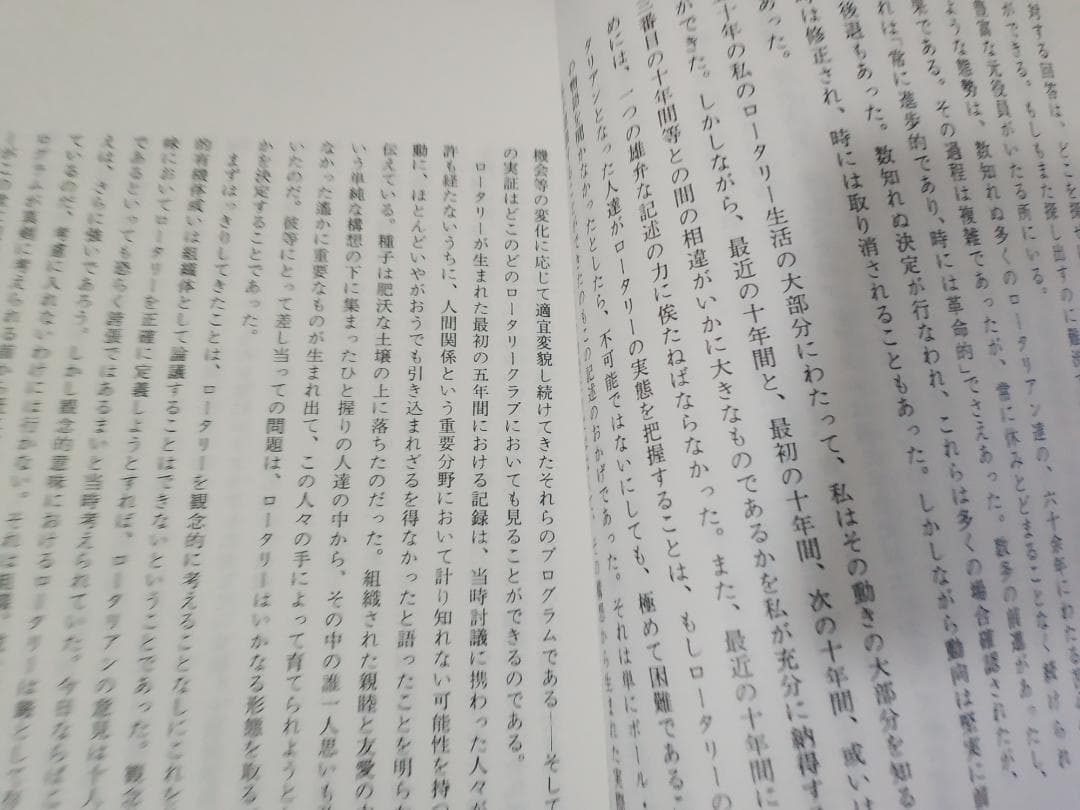 対する回答は、どこを探せ
ができる。もしもまた探し出すのに難渋
豊富な元役員がいたる所にいる。
ような態勢は、数知れぬ多くのロータリアン達の、六十余年にわたる
果である。その過程は複雑であったが、常に休みとどまることなく続けられ
れは「常に進歩的であり、時には革命的」でさえあった。数多の前進があったし、
後退もあった。数知れぬ決定が行なわれ、これらは多くの場合確認されたが、
時は修正され、時には取り消されることもあった。しかしながら動向は堅実に
あった。
十年の私のロータリー生活の大部分にわたって、私はその動きの大部分を知る
ができた。しかしながら、最近の十年間と、最初の十年間、次の十年間、或いは
三番目の十年間等との間の相違がいかに大きなものであるかを私が充分に納得す
めには、一つの雄弁な記述の力に俟たねばならなかった。また、最近の十年間に
タリアンとなった人達がロータリーの実態を把握することは、もしロータリーの
の物語を聞かなかったとしたら、不可能ではないにしても、極めて困難であるこ
のもこの記述のおかげであった。それは単にポール・
機会等の変化に応じて適宜変貌し続けてきたそれらのプログラムである――そして
の実証はどこのどのロータリークラブにおいても見ることができるのである。
ロータリーが生まれた最初の五年間における記録は、当時討議に携わった人々が
許も経たないうちに、人間関係という重要分野において計り知れない可能性を持つ
動に、ほとんどいやがおうでも引き込まれざるを得なかったと語ったことを明らか
伝えている。種子は肥沃な土壌の上に落ちたのだった。組織された親睦と友愛の
いう単純な構想の下に集まったひと握りの人達の中から、その中の誰一人思いも
なかった遙かに重要なものが生まれ出て、この人々の手によって育てられようと
いたのだ。彼等にとって差し当っての問題は、ロータリーはいかなる形態を取る
かを決定することであった。
まずはっきりしてきたことは、ロータリーを観念的に考えることなしにこれを
的有機体或いは組織体として論議することはできないということであった。観念
味においてロータリーを正確に定義しようとすれば、ロータリアンの意見は十人
であるといっても恐らく誇張ではあるまいと当時考えられていた。今日ならばこ
えは、さらに強いであろう。しかし観念的意味におけるロータリーは厳として
ているのだ、考慮に入れないわけには行かない。それは組織